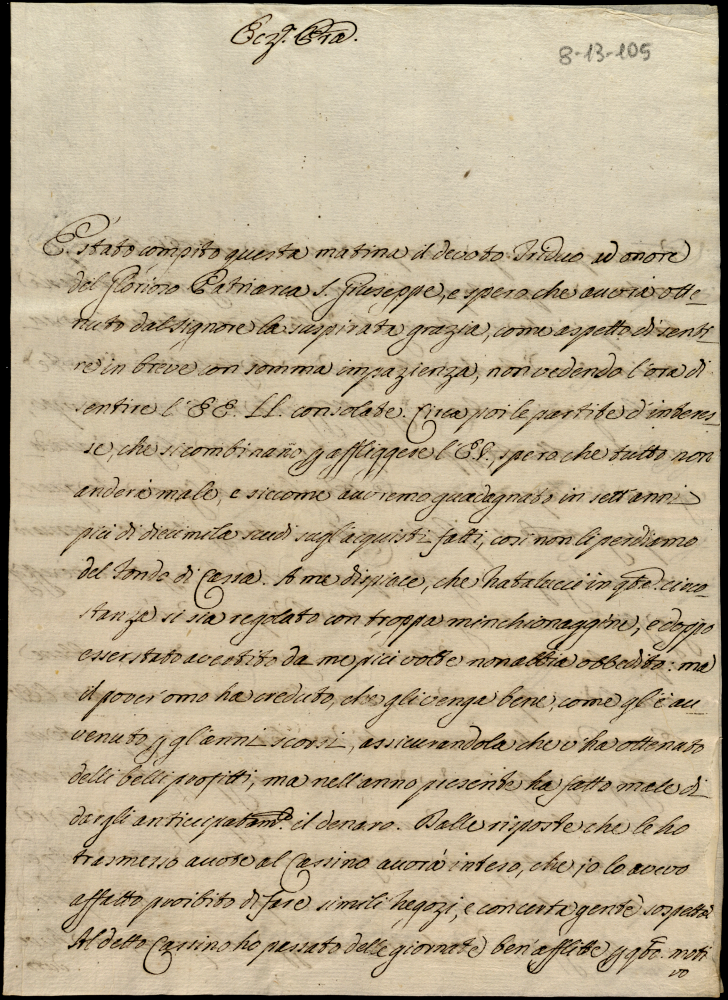 Ecz.ª Pra.
8-13-105
È stato compito questa matina il devoto Triduo ad onore
del Glorioso Patriarca S. Giuseppe, e spero che avuerà otte-
nuto dal Signore la suspirata grazia, come aspetto di senti-
re in breve con somma impazienza, non vedendo l'ora di
sentire l'EE. LL. consolate. Circa poi le partite d'interes-
se, che si combinano p affliggere l'EV. spero che tutto non
anderà male, e siccome avremo guadagnato in sett'anni
più di diecimila scudi sugl'acquisti fatti, così non li perdiamo
del fondo di Cassa. A me dispiace, che Natalucci in qta circo-
stanza si sia regolato con troppa minchionaggine, e doppo
esser stato avertito da me più volte non abbia obbedito: ma
il pover omo ha creduto, che gli venga bene, come gl'è au-
venuto p gl'anni scorsi, assicurandola che v'ha ottenuto
delli belli profitti, ma nell'anno presente ha fatto male di
dargli anticipatam.e il denaro. Dalle risposte che le ho
trasmesso avute al Cassino avorà inteso, che io lo avevo
affatto proibito di fare simili negozi, e con certa gente sospetta.
Al detto Cassino ho passato delle giornate ben' afflitte p qto. moti
vo